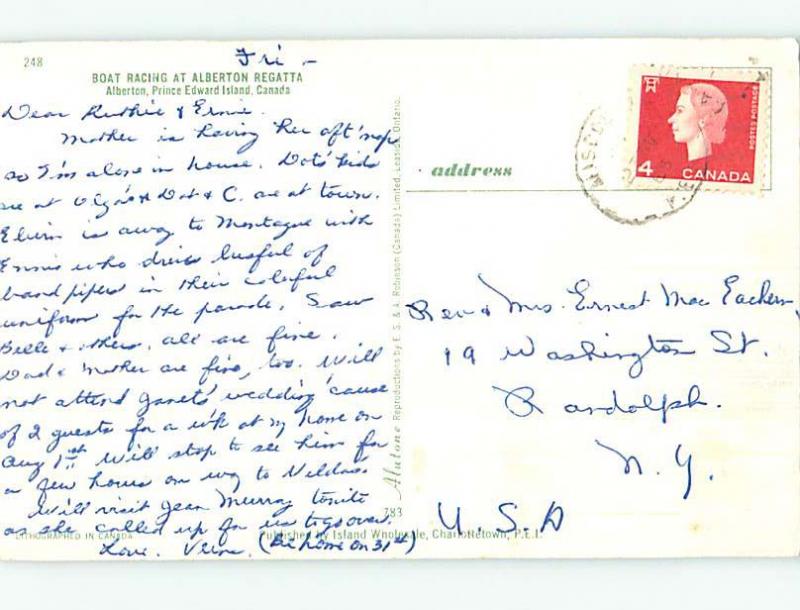 248
Fri -
BOAT RACING AT ALBERTON REGATTA
Alberton, Prince Edward Island, Canada
Dear Ruthie & Ernie.
Mother is having her aft' nap
so I'm alone in house. Dots' kids
are at Olga's & Dot & C. are at town.
Elvin is away to Montague with
Ennis who drives busful of
band pipers in their colorful
uniform for the parade. Saw
Belle & others, all are fine.
Dad & Mother are fine, too. Will
not attend Janets' wedding 'cause
of 2 guests for a wk at my home on
Aug 1st. Will stop to see him for
a few hours on way to
Will visit Jean Murray tonite
as she called up for us to go over.
Love. (Be home on 31st)
LITHOGRAPHED IN CANADA
Published by Island Wholesale, Charlottetown, P.E.I.
783
Reproductions by E. S. & A. Robinson (Canada) Limited, Leaside, Ontario.
address
POSTES POSTAGE
4 CANADA
Rev & Mrs. Ernest Mac Eachern,
19 Washington St.
Randolph.
N.Y.
U.S.A